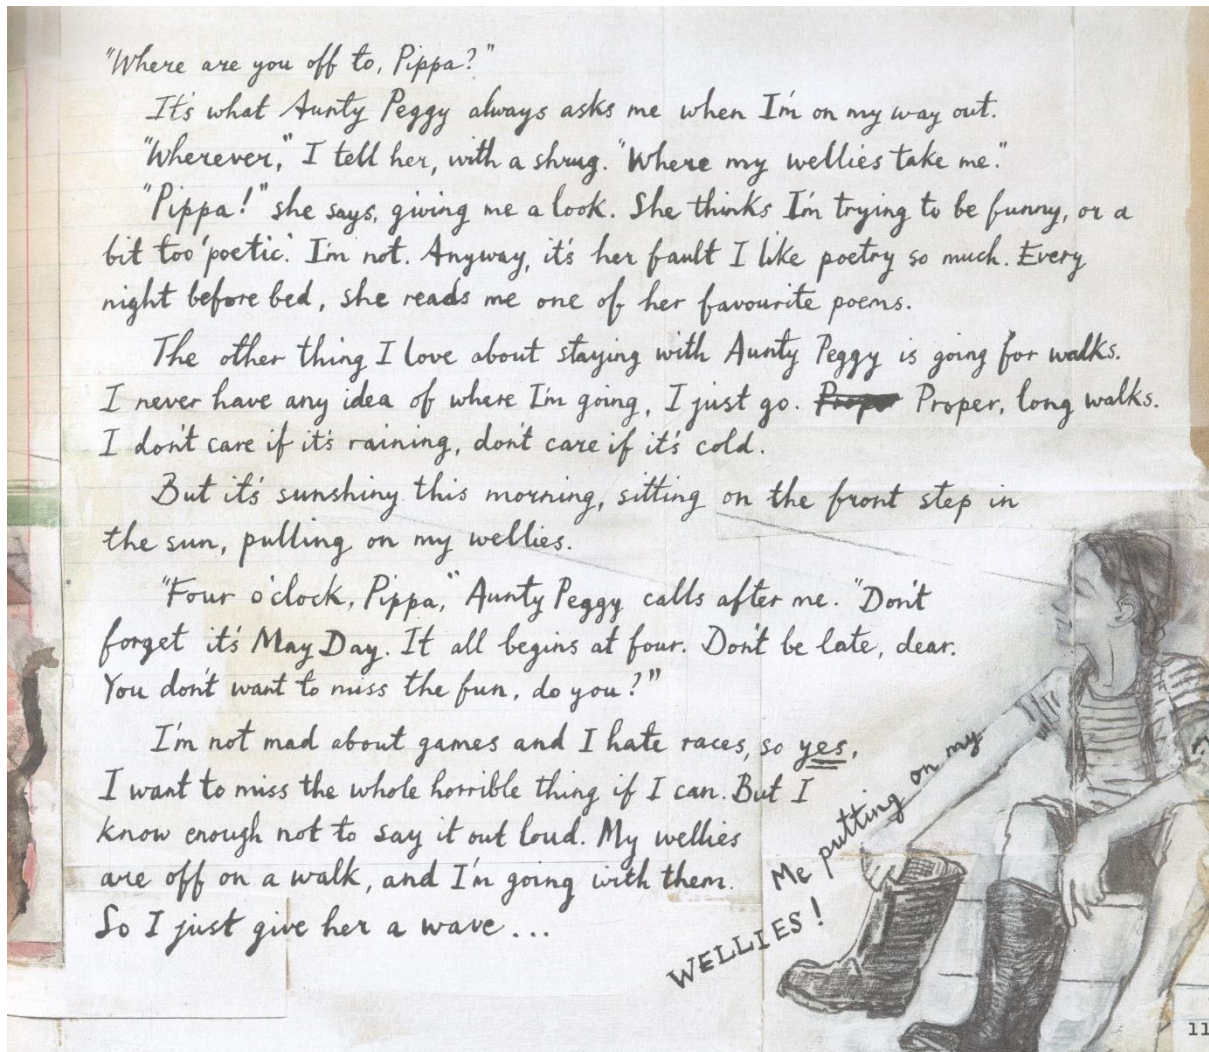 "Where are you off to, Pippa?"
It's what Aunty Peggy always asks me when I'm on my way out.
"Wherever," I tell her, with a shrug. "Where my wellies take me."
"Pippa!" she says, giving me a look. She thinks I'm trying to be funny, or a
bit too 'poetic'. I'm not. Anyway, it's her fault I like poetry so much. Every
night before bed, she reads me one of her favourite poems.
The other thing I love about staying with Aunty Peggy is going for walks.
I never have any idea of where I'm going, I just go. Proper Proper, long walks.
I don't care if it's raining, don't care if it's cold.
But it's sunshiny this morning, sitting on the front step in
the sun, pulling on my wellies.
"Four o'clock, Pippa," Aunty Peggy calls after me. "Don't
forget it's May Day. It all begins at four. Don't be late, dear.
You don't want to miss the fun, do you?"
I'm not mad about games and I hate races, so yes,
I want to miss the whole horrible thing if I can. But I
know enough not to say it out loud. My wellies
are off on a walk, and I'm going with them.
So I just give her a wave...
Me putting on my
WELLIES!
11